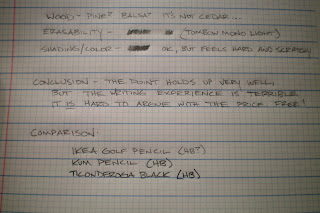 WOOD - PINE? BALSA? IT'S NOT CEDAR...
ERASABILITY - (TOMBOW MONO LIGHT)
SHADING/COLOR - OK, BUT FEELS HARD AND SCRATCHY
CONCLUSION - THE POINT HOLDS UP VERY WELL,
BUT THE WRITING EXPERIENCE IS TERRIBLE
IT IS HARD TO ARGUE WITH THE PRICE, FREE!
COMPARISON:
IKEA GOLF PENCIL (HB?)
KUM PENCIL (HB)
TICONDEROGA BLACK (HB)